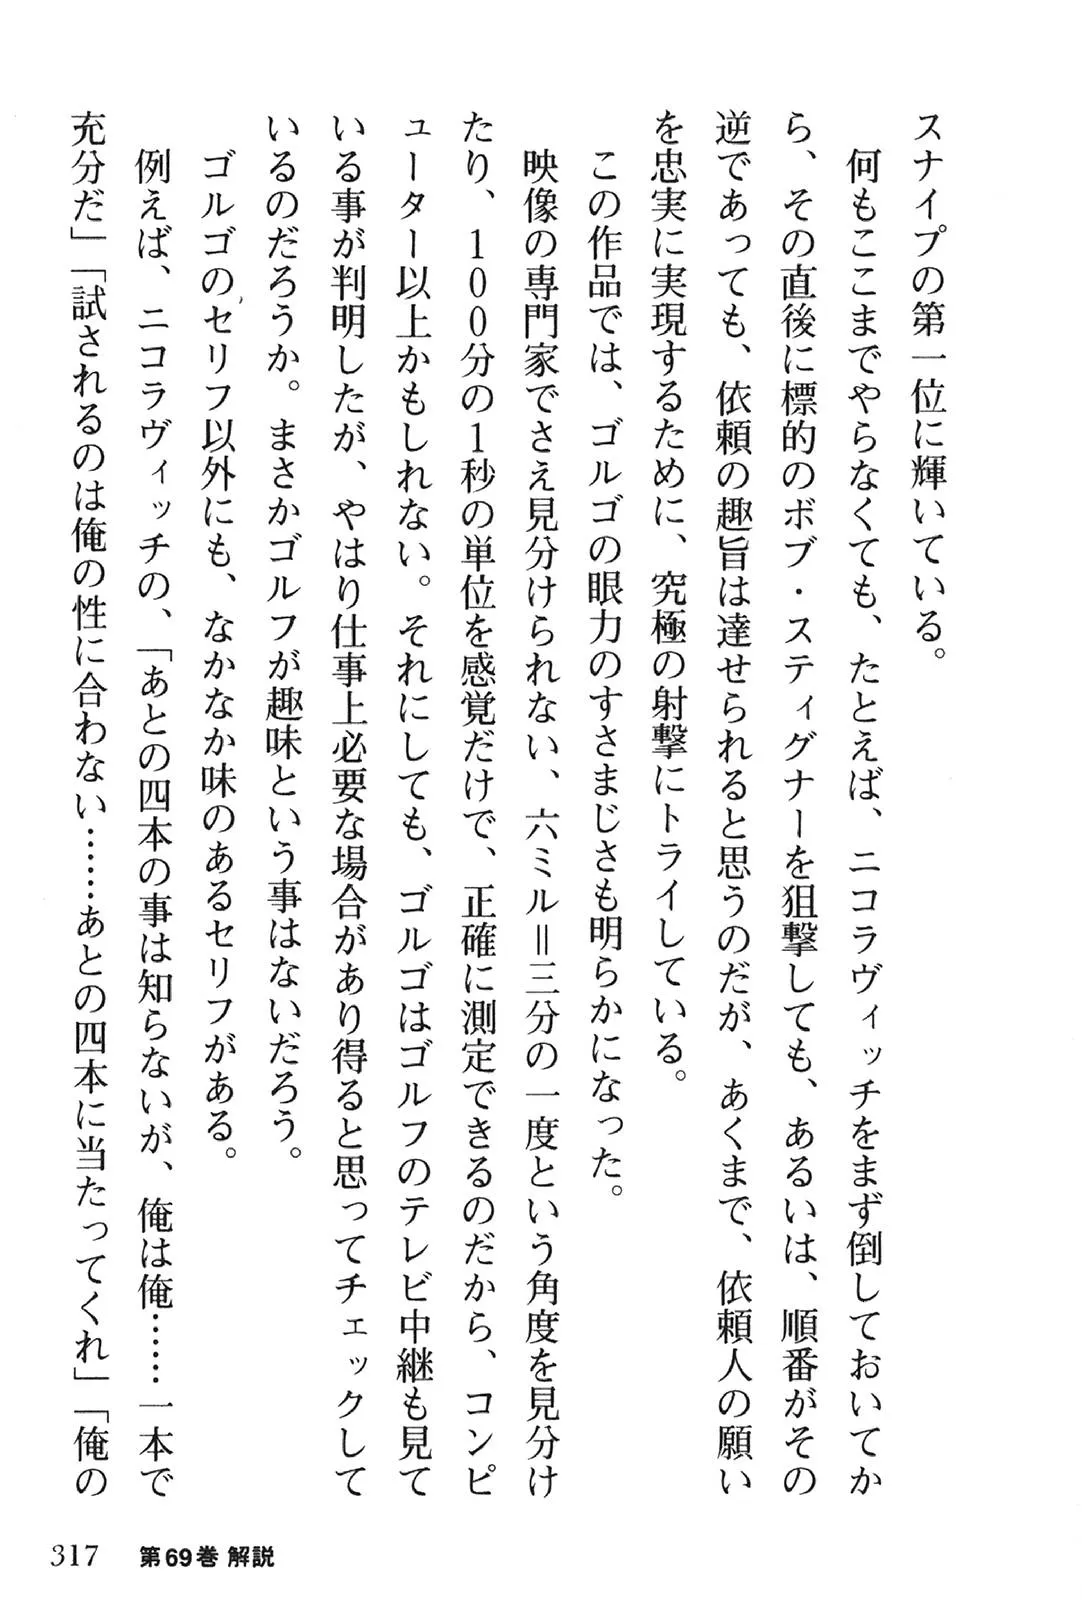 スナイプの第一位に輝いている。
何もここまでやらなくても、たとえば、ニコラヴィッチをまず倒しておいてか
ら、その直後に標的のボブ・スティグナーを狙撃しても、あるいは、順番がその
逆であっても、依頼の趣旨は達せられると思うのだが、あくまで、依頼人の願い
を忠実に実現するために、究極の射撃にトライしている。
この作品では、ゴルゴの眼力のすさまじさも明らかになった。
映像の専門家でさえ見分けられない、六ミル＝三分の一度という角度を見分け
たり、100分の1秒の単位を感覚だけで、正確に測定できるのだから、コンピ
ューター以上かもしれない。それにしても、ゴルゴはゴルフのテレビ中継も見て
いる事が判明したが、やはり仕事上必要な場合があり得ると思ってチェックして
いるのだろうか。まさかゴルフが趣味という事はないだろう。
ゴルゴのセリフ以外にも、なかなか味のあるセリフがある。
例えば、ニコラヴィッチの、「あとの四本の事は知らないが、俺は俺……一本で
充分だ」「試されるのは俺の性に合わない……あとの四本に当たってくれ」「俺の
317 第69巻 解説